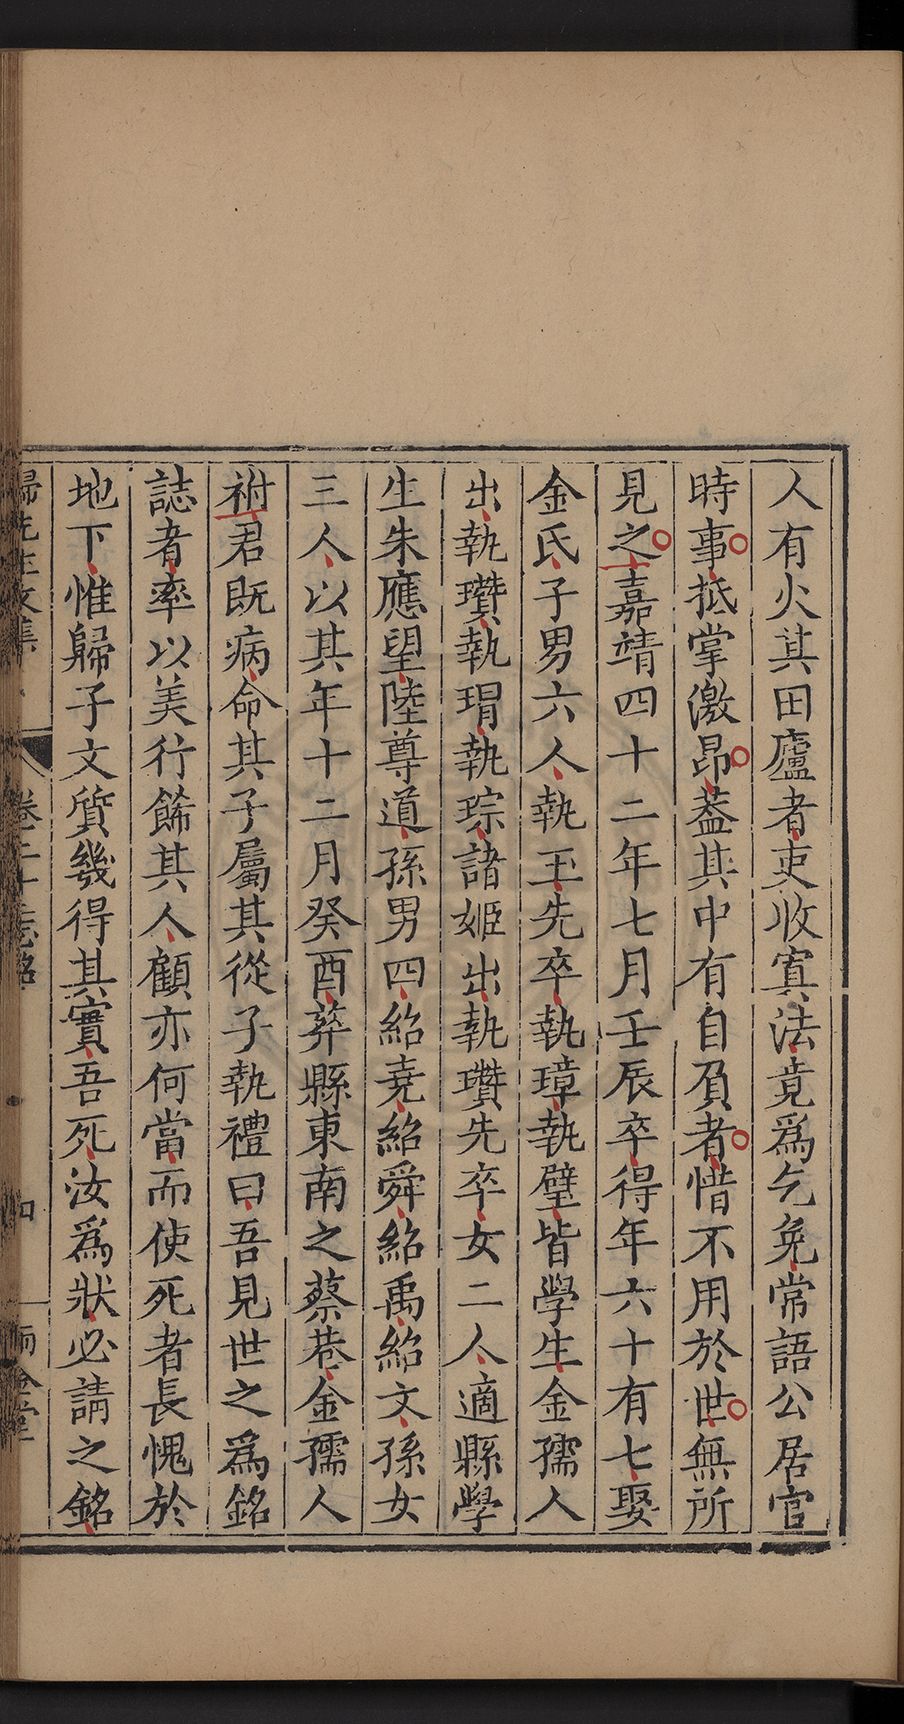 人有火其田廬者吏收寘法竟爲乞免常語公居官
時事抵掌激昂葢其中有自負者惜不用於世無所
見之嘉靖四十二年七月壬辰卒得年六十有七娶
金氏子男六人執玉先卒執璋執璧皆學生金孺人
出執瓚執瑁執琮諸姬出執瓚先卒女二人適縣學
生朱應望陸尊道孫男四紹堯紹舜紹禹紹文孫女
三人以其年十二月癸酉葬縣東南之蔡巷金孺人
祔君既病命其子屬其從子執禮曰吾見世之爲銘
誌者率以美行餙其人顧亦何當而使死者長愧於
地下惟歸子文質幾得其實吾死汝爲狀必請之銘
歸先生文集 卷二十 志銘 四 雨金堂